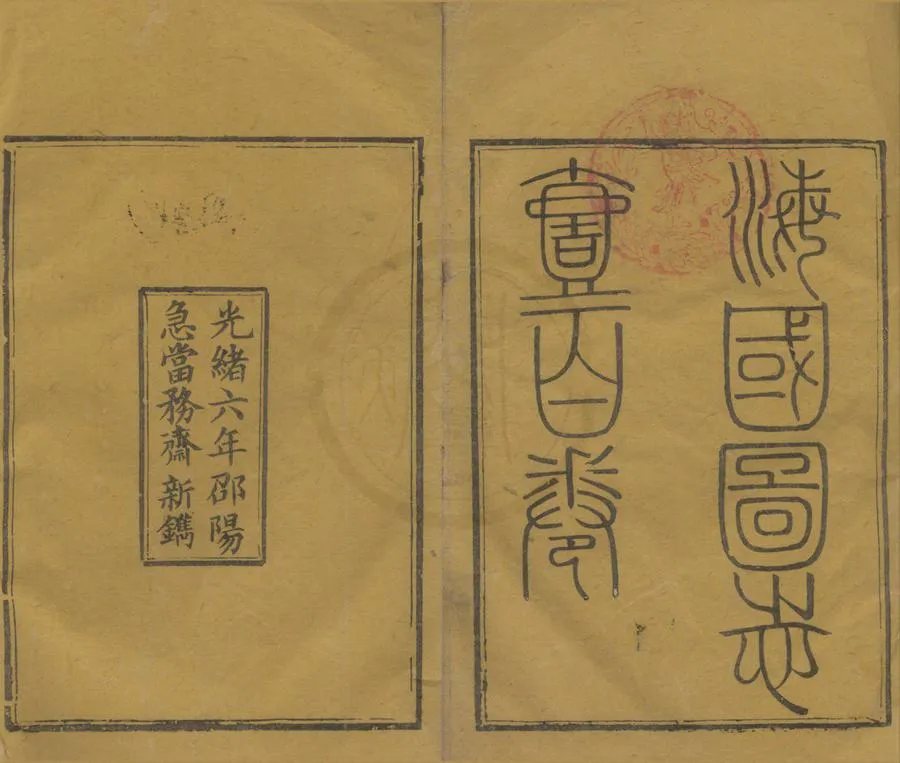 海國圖志
壹百卷
光緒六年邵陽
急當務齋新鐫